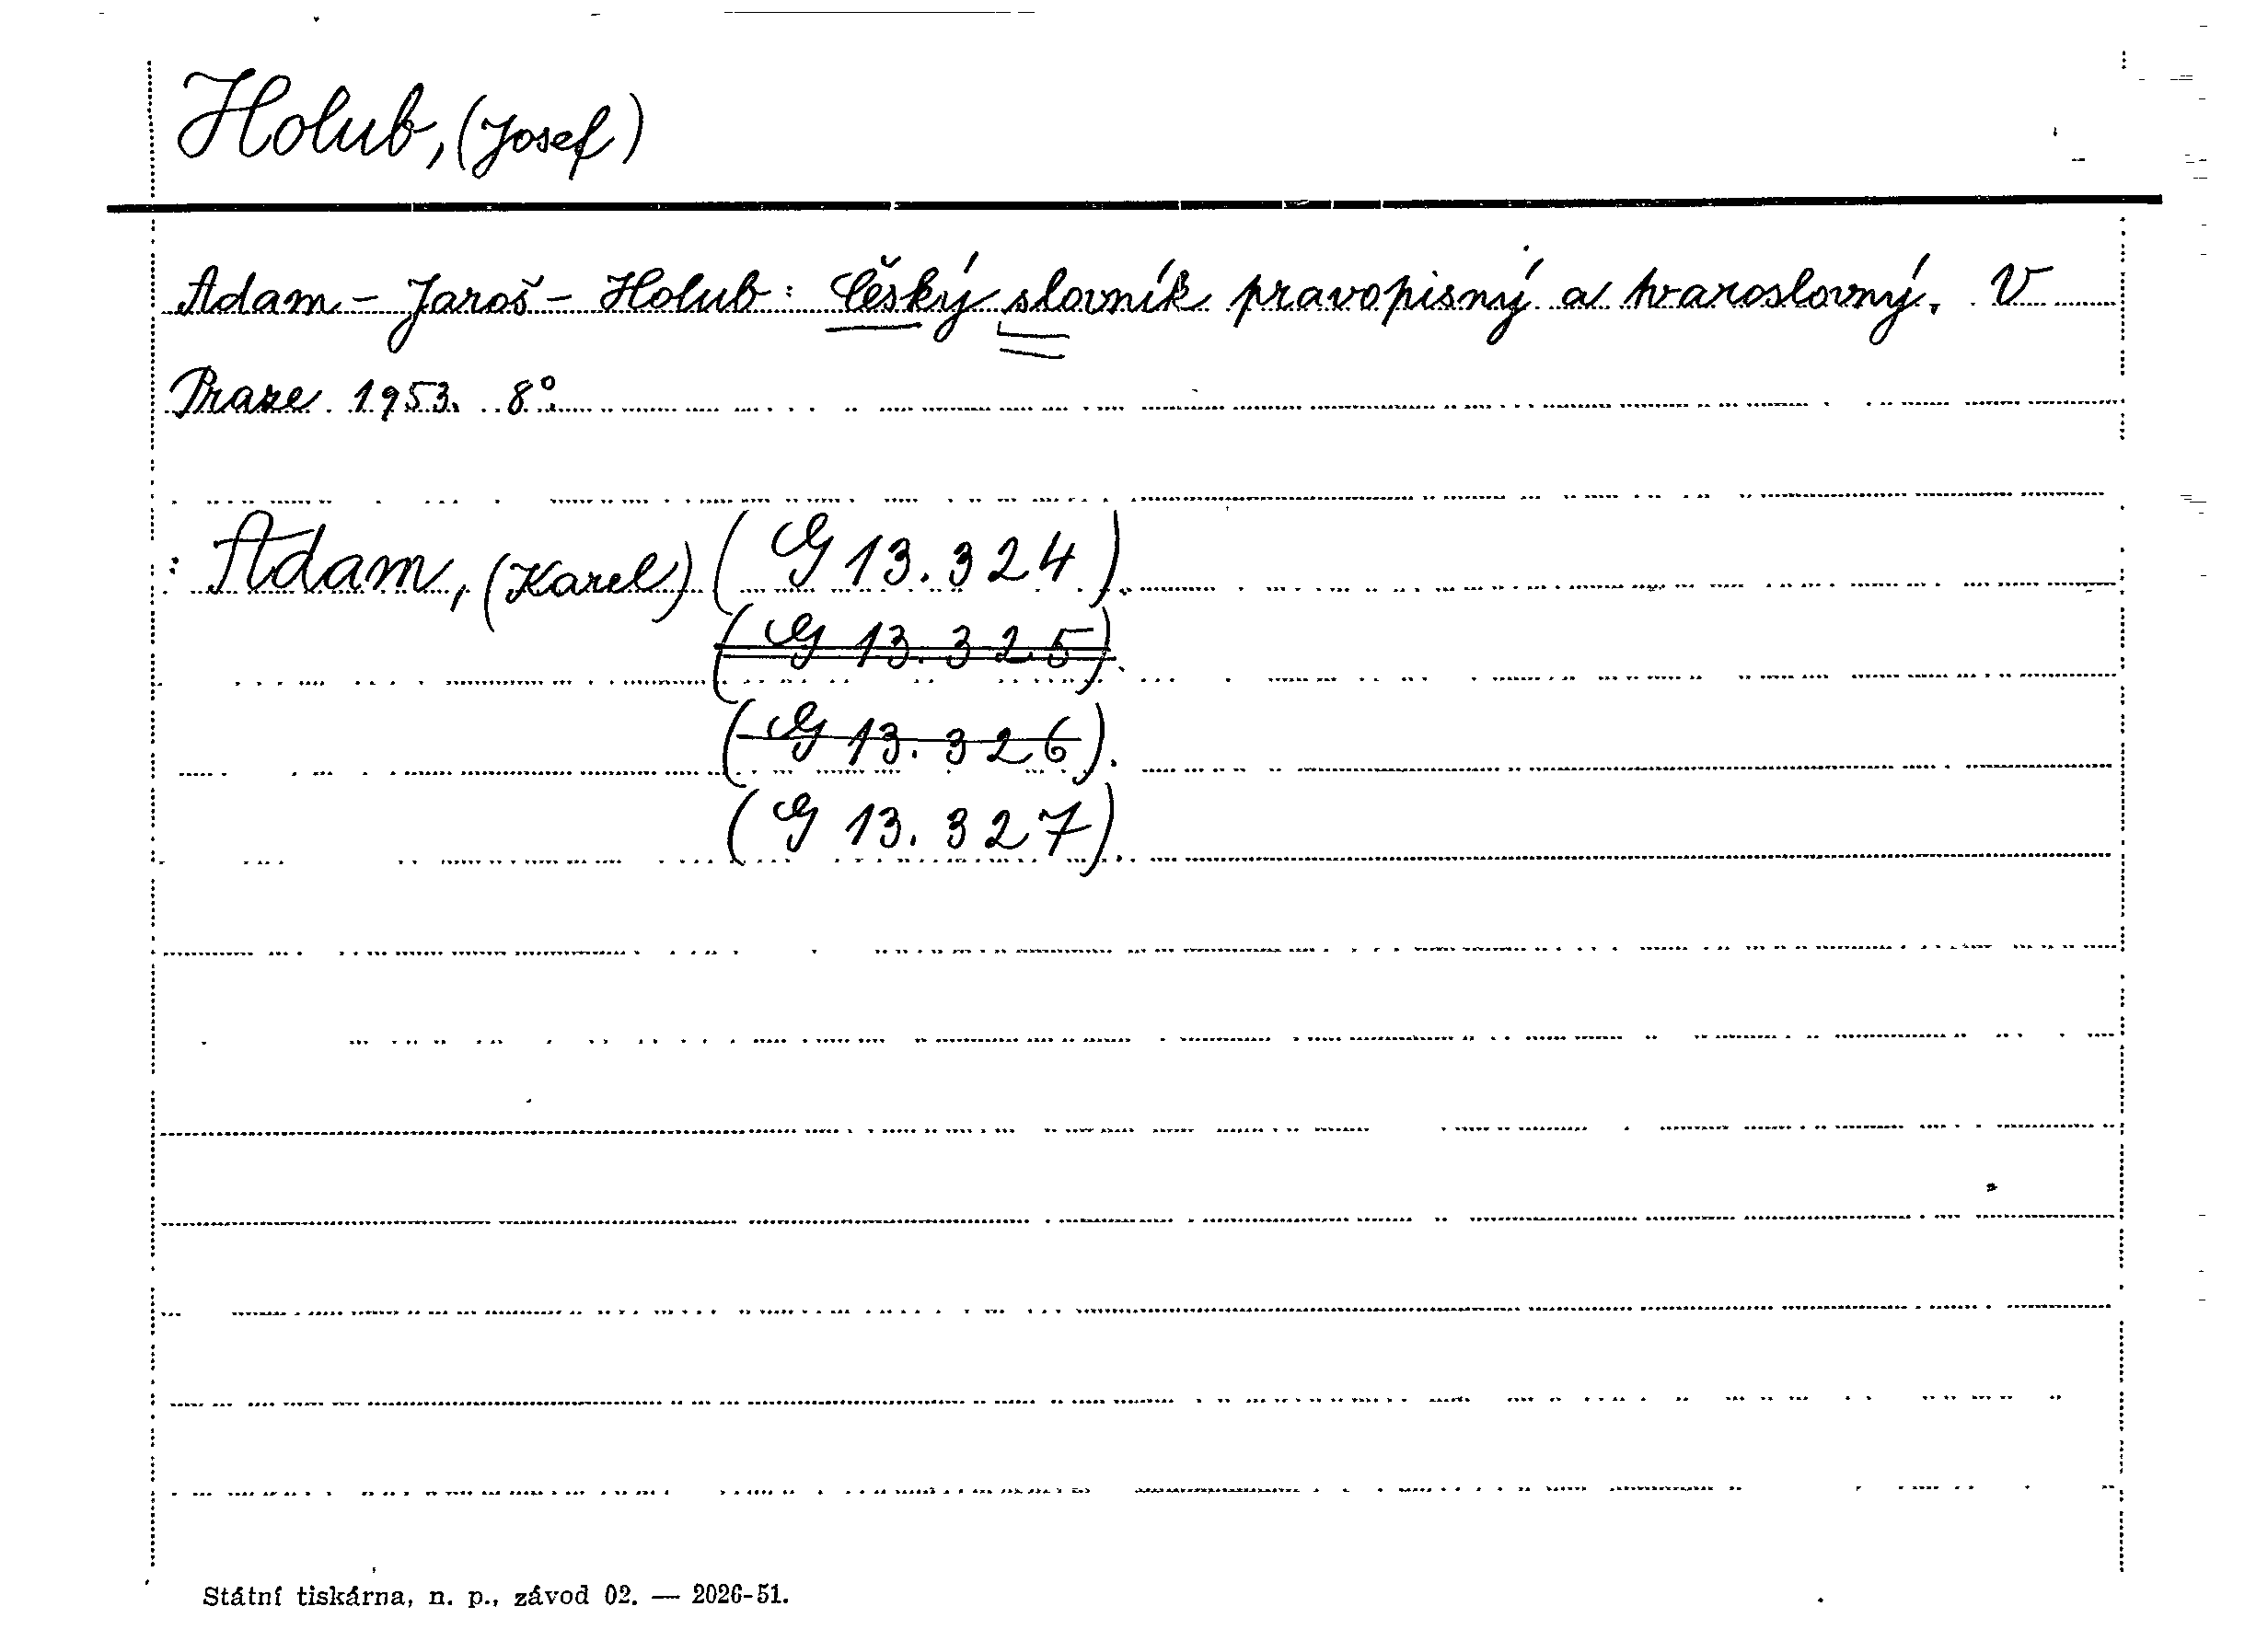 Holub, (Josef)
Adam - Jaroš - Holub: Český slovník pravopisný a tvaroslovný. V
Praze 1953. 8°.
: Adam, (Karel) (G 13.324).
(G 13.325).
(G 13.326).
(G 13.327).
Státní tiskárna, n. p., závod 02. — 2026-51.